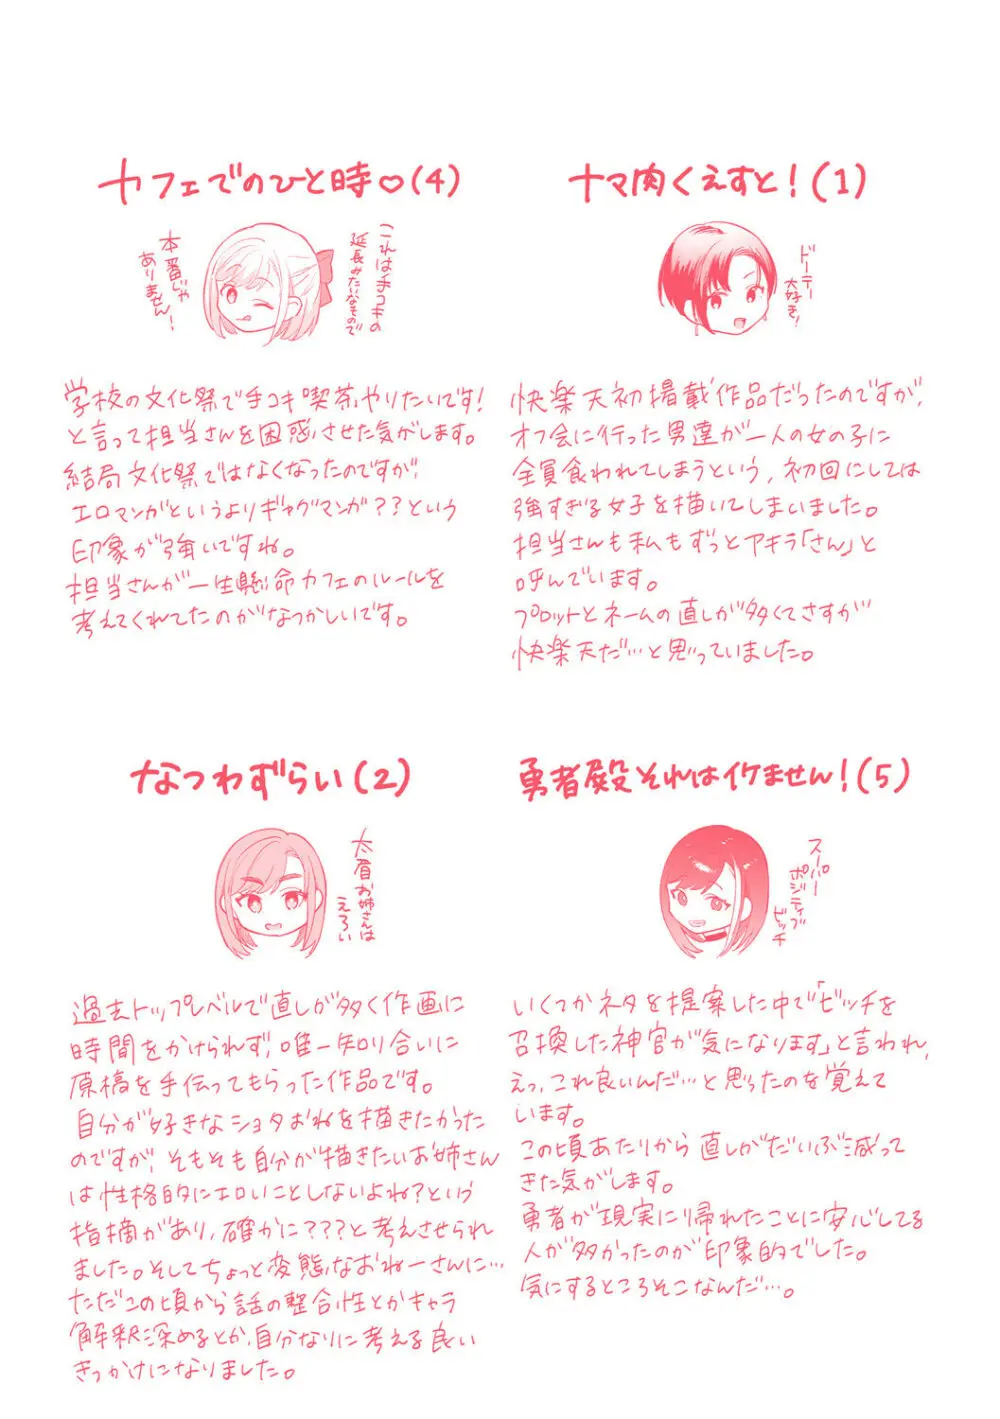 カフェでのひと時♡(4)
これは手コキの
延長みたいなもので
本番じゃ
ありません!
学校の文化祭で手コキ喫茶やりたいです!
と言って担当さんを困惑させた気がします。
結局文化祭ではなくなったのですが、
エロマンガというよりギャグマンガ??という
印象が強いですね。
担当さんが一生懸命カフェのルールを
考えてくれてたのがなつかしいです。
ナマ肉くえすと!(1)
ドーテー
大好き!
快楽天初掲載作品だったのですが、
オフ会に行った男達が一人の女の子に
全員食われてしまうという、初回にしては
強すぎる女子を描いてしまいました。
担当さんも私もずっとアキラ「さん」と
呼んでいます。
プロットとネームの直しが多くてさすが
快楽天だ…と思っていました。
なつわずらい(2)
太眉お姉さんは
えろい
過去トップレベルで直しが多く作画に
時間をかけられず、唯一知り合いに
原稿を手伝ってもらった作品です。
自分が好きなショタおねを描きたかった
のですが、そもそも自分が描きたいお姉さん
は性格的にエロいことしないよね?という
指摘があり、確かに???と考えさせられ
ました。そしてちょっと変態なおねーさんに…
ただこの頃から話の整合性とかキャラ
解釈深めるとか、自分なりに考える良い
きっかけになりました。
勇者殿それはイケません!(5)
スーパー
ポジティブ
ビッチ
いくつかネタを提案した中で「ビッチを
召喚した神官が気になります」と言われ、
えっ、これ良いんだ…と思ったのを覚えて
います。
この頃あたりから直しがだいぶ減って
きた気がします。
勇者が現実に帰れたことに安心してる
人が多かったのが印象的でした。
気にするところそこなんだ…。